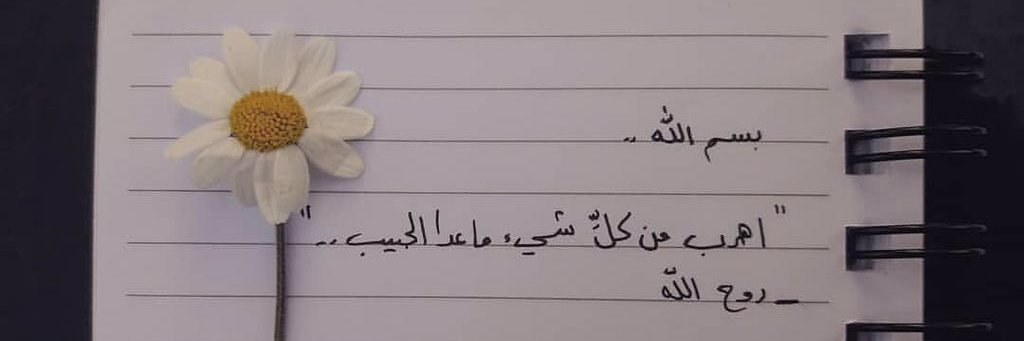 بسم الله ..
"اهرب من كلِّ شيء ماعدا الحبيب .. "
ـ روح اللّه